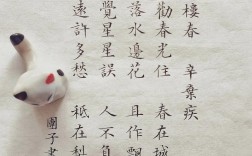 樓春 辛棄疾
勸春光住 春在城
落水邊花 且作飄
覺星星誤 人不負
遠許多愁 秪在梨
團子書